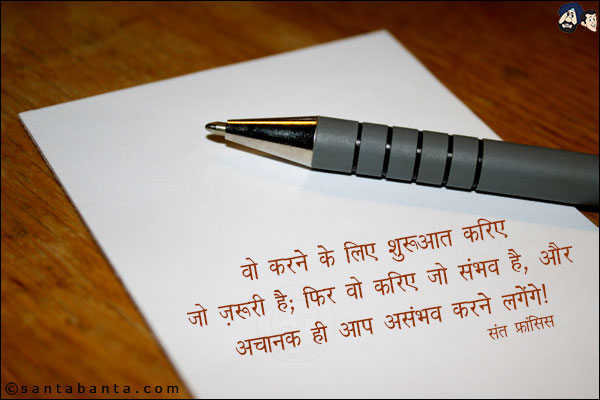 वो करने के लिए शुरूआत करिए
जो ज़रूरी है; फिर वो करिए जो संभव है, और
अचानक ही आप असंभव करने लगेंगे!
संत फ्रांसिस
©santabanta.com